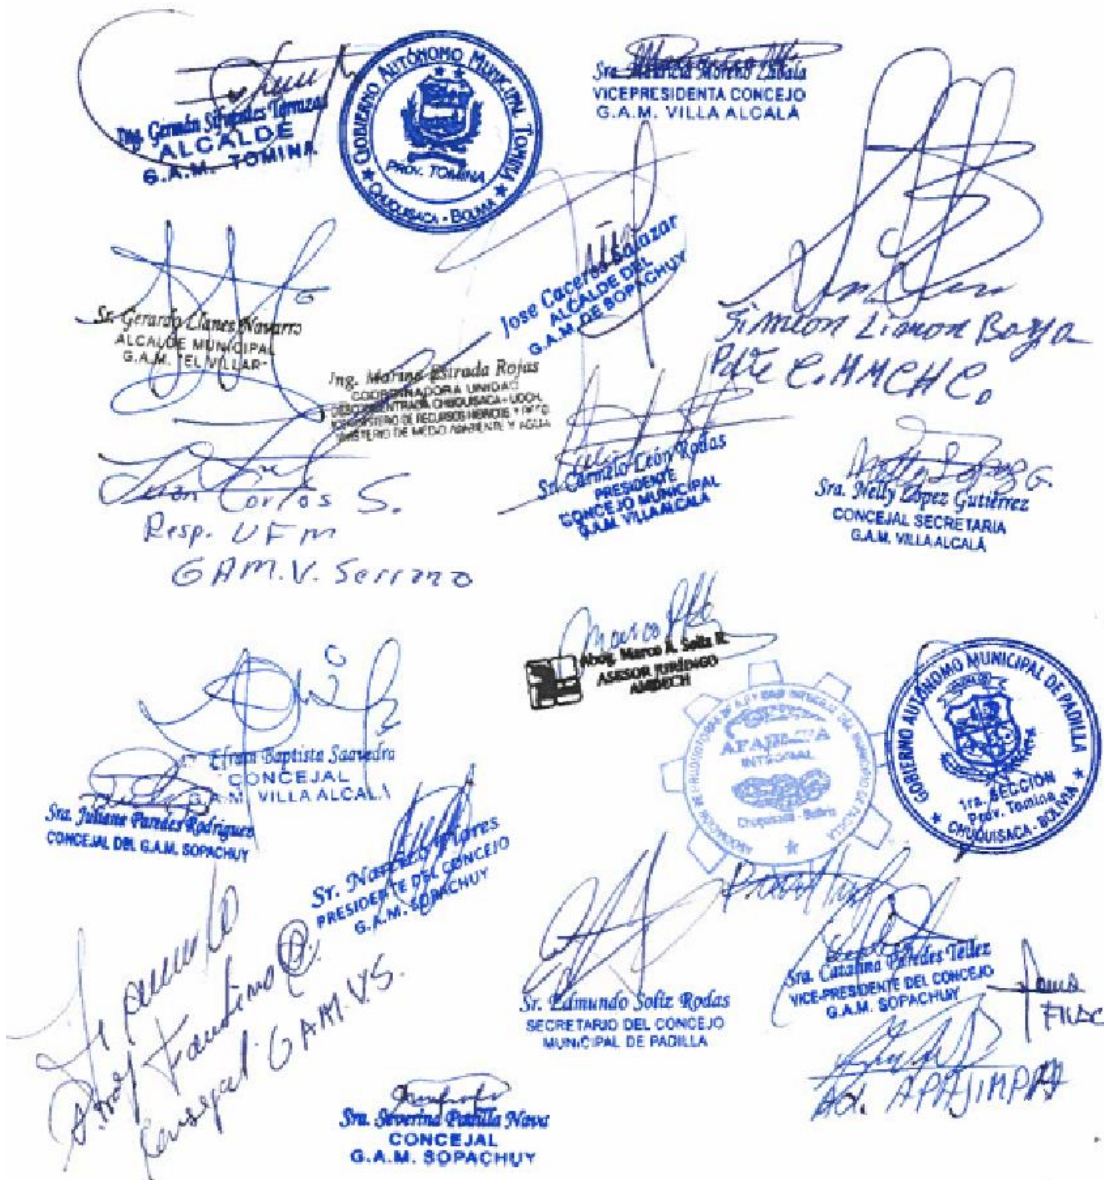 Ing. Germán Sifuentes Terrazas
ALCALDE
G.A.M. TOMINA
GOBIERNO AUTÓNOMO MUNICIPAL TOMINA
PROV. TOMINA
CHUQUISACA - BOLIVIA
Sra. Mauricia Moreno Zabala
VICEPRESIDENTA CONCEJO
G.A.M. VILLA ALCALÁ
Sr. Gerardo Llanes Navarro
ALCALDE MUNICIPAL
G.A.M. "EL VILLAR"
Jose Caceres Salazar
ALCALDE DEL
G.A.M. DE SOPACHUY
Simeon Limon Borja
Pdte C.MMCH C.
Ing. Marina Estrada Rojas
COORDINADORA UNIDAD
DESCONCENTRADA CHUQUISACA - UDCH.
VICEMINISTERIO DE RECURSOS HIDRICOS Y RIEGO
MINISTERIO DE MEDIO AMBIENTE Y AGUA
Carlos S.
Resp. UFM
GAM.V. Serrano
Sr. Carmelo León Rodas
PRESIDENTE
CONCEJO MUNICIPAL
G.A.M. VILLA ALCALA
Sra. Nelly López Gutiérrez
CONCEJAL SECRETARIA
G.A.M. VILLA ALCALÁ
Marco
Abog. Marco A. Soliz R.
ASESOR JURÍDICO
AMDECH
Efrain Baptista Saavedra
CONCEJAL
G.A.M. VILLA ALCALÁ
Sra. Juliana Paredes Rodríguez
CONCEJAL DEL G.A.M. SOPACHUY
Sr. Narciso Flores
PRESIDENTE DEL CONCEJO
G.A.M. SOPACHUY
APAJIMPA
INTEGRAL
Chuquisaca - Bolivia
GOBIERNO AUTÓNOMO MUNICIPAL DE PADILLA
1ra. SECCIÓN
Prov. Tomina
CHUQUISACA - BOLIVIA
Prof Faustino
Consejal. GAM.VS.
Sr. Edmundo Soliz Rodas
SECRETARIO DEL CONCEJO
MUNICIPAL DE PADILLA
Sra. Catalina Paredes Tellez
VICE-PRESIDENTE DEL CONCEJO
G.A.M. SOPACHUY
APAJIMPA
Sra. Severina Padilla Nava
CONCEJAL
G.A.M. SOPACHUY